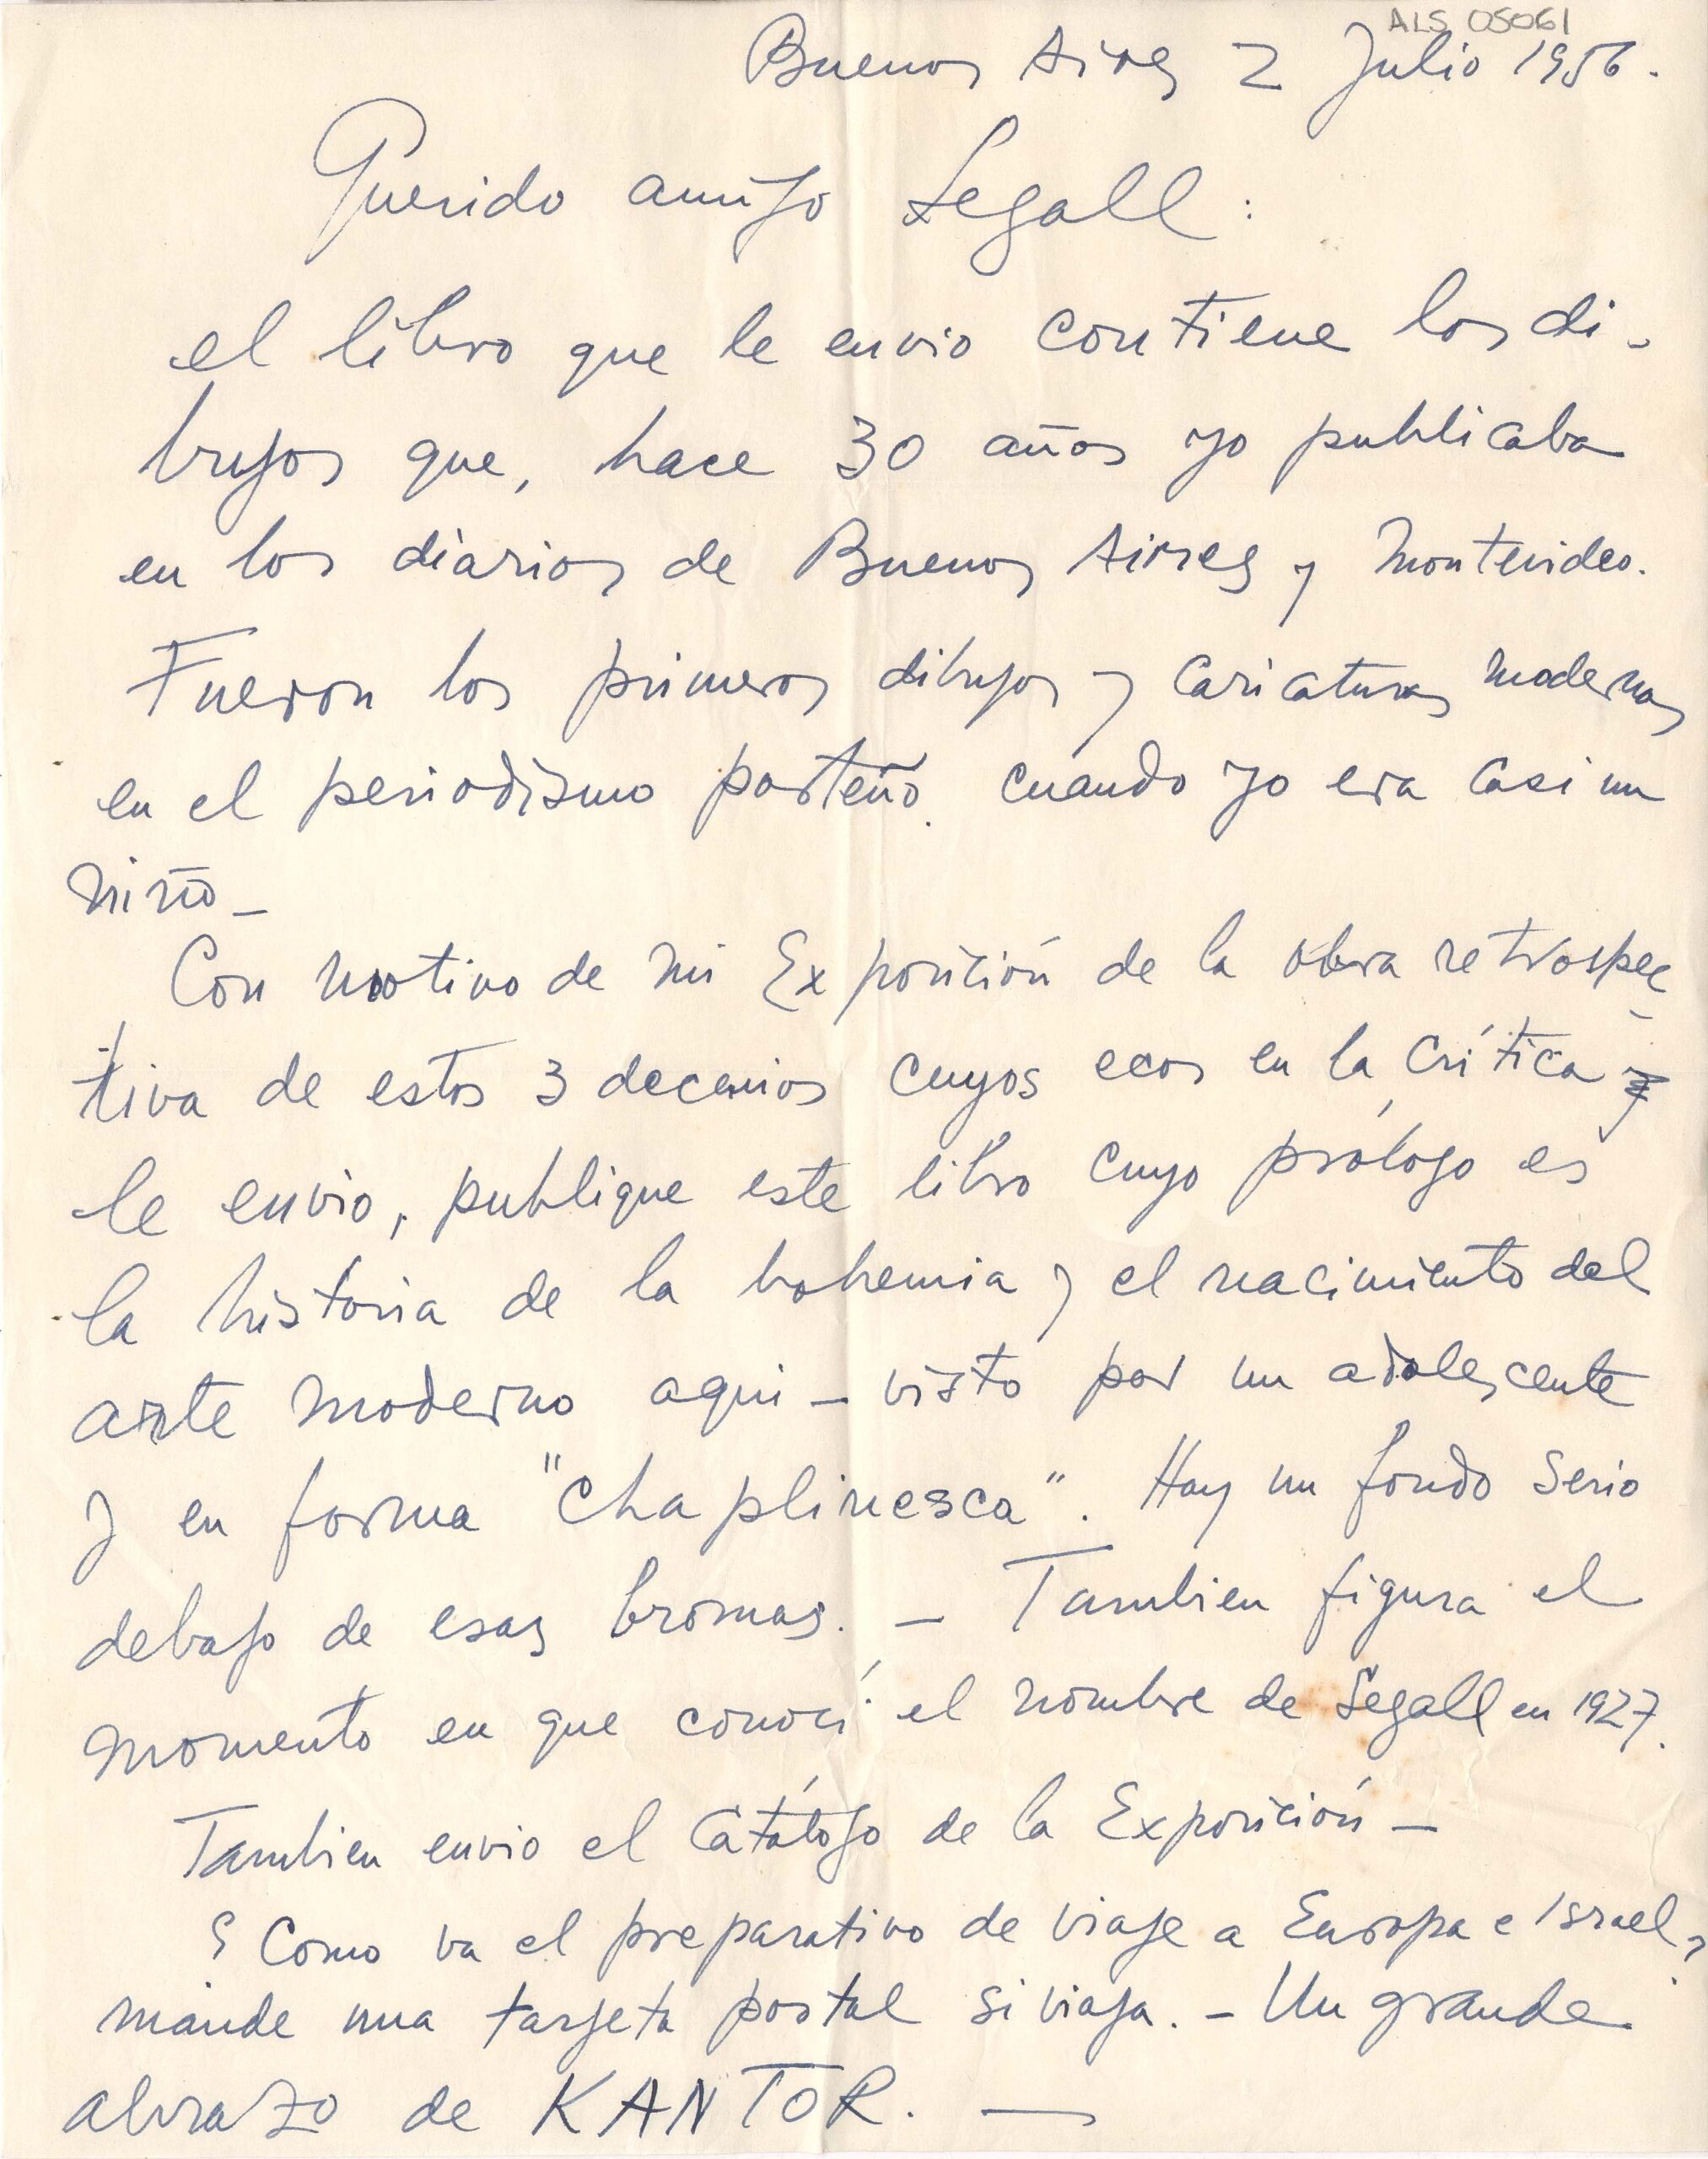 ALS 05061
Buenos Aires 2 Julio 1956.
Querido amigo Segall:
el libro que le envio contiene los di-
bujos que, hace 30 años yo publicaba
en los diarios de Buenos Aires y Montevideo.
Fueron los primeros dibujos y caricaturas modernas
en el periodismo porteño. cuando yo era casi un
niño_
Con motivo de mi Exposición de la obra retrospec-
tiva de estos 3 decenios cuyos ecos en la crítica
le envio, publique este libro cuyo prólogo es
la historia de la bohemia y el nacimiento del
arte moderno aqui - visto por un adolescente
y en forma "chaplinesca". Hay un fondo serio
debajo de esas bromas. - Tambien figura el
momento en que conocí el nombre de Segall en 1927.
Tambien envio el Catálogo de la Exposición -
¿Como va el preparativo de viaje a Europa e Israel?
mánde una tarjeta postal si viaja. - Un grande
abrazo de KANTOR. —